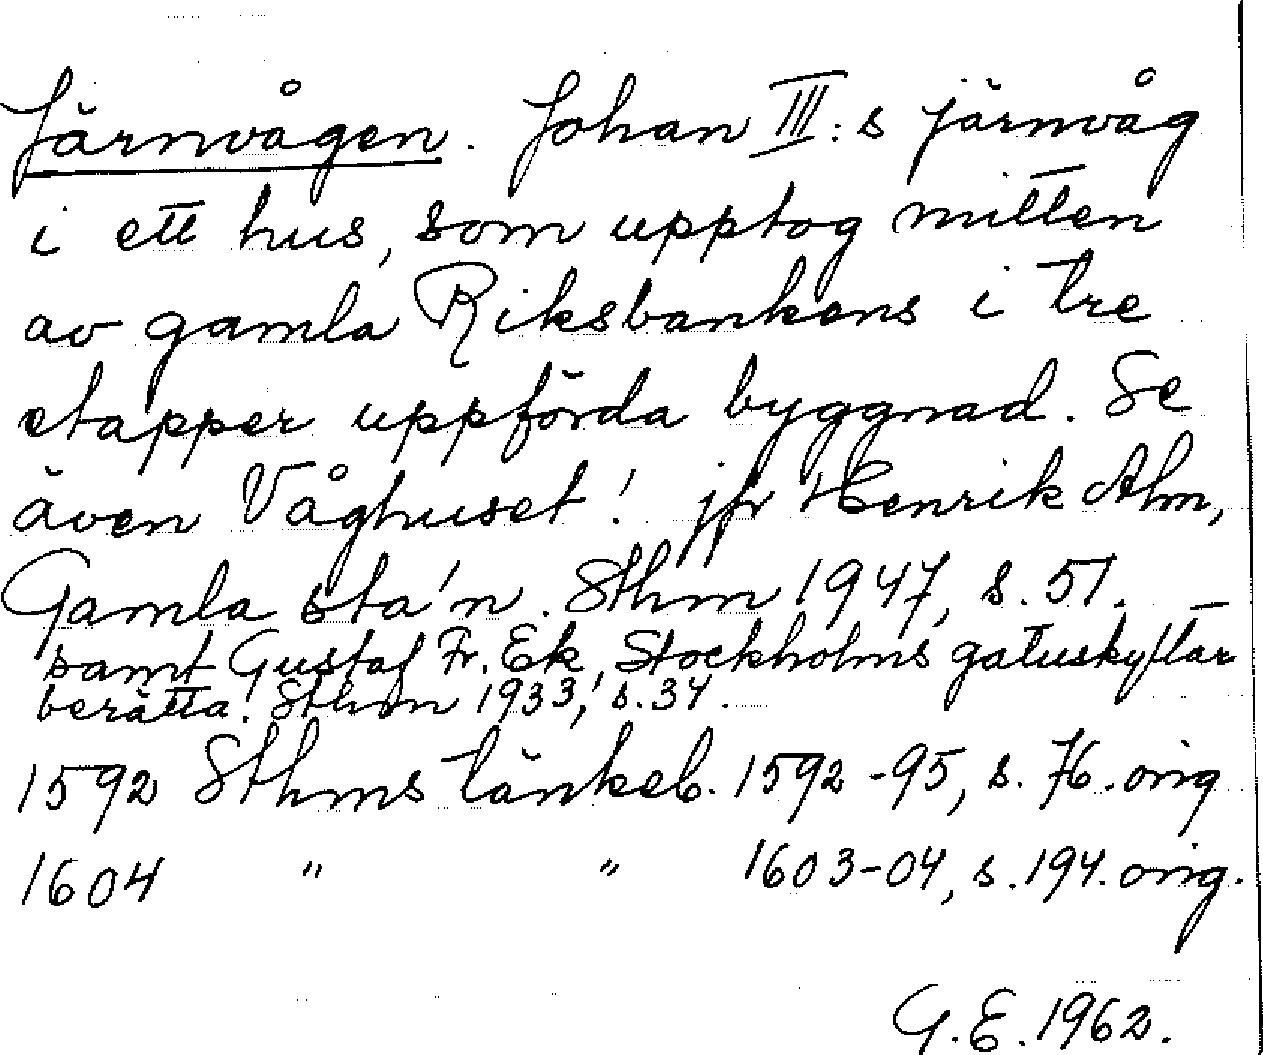 Järnvågen. Johan III:s järnvåg
i ett hus, som upptog mitten
av gamla Riksbankens i tre
etapper uppförda byggnad. Se
även Våghuset! jfr Henrik Alm,
Gamla sta'n. Sthm 1947, s. 51.
samt Gustaf Fr. Ek, Stockholms gatuskyltar
berätta! Sthm 1933, s. 34.
1592 Sthms tänkeb. 1592-95, s. 76. orig
1604 " " 1603-04, s. 194. orig.
G.E. 1962.